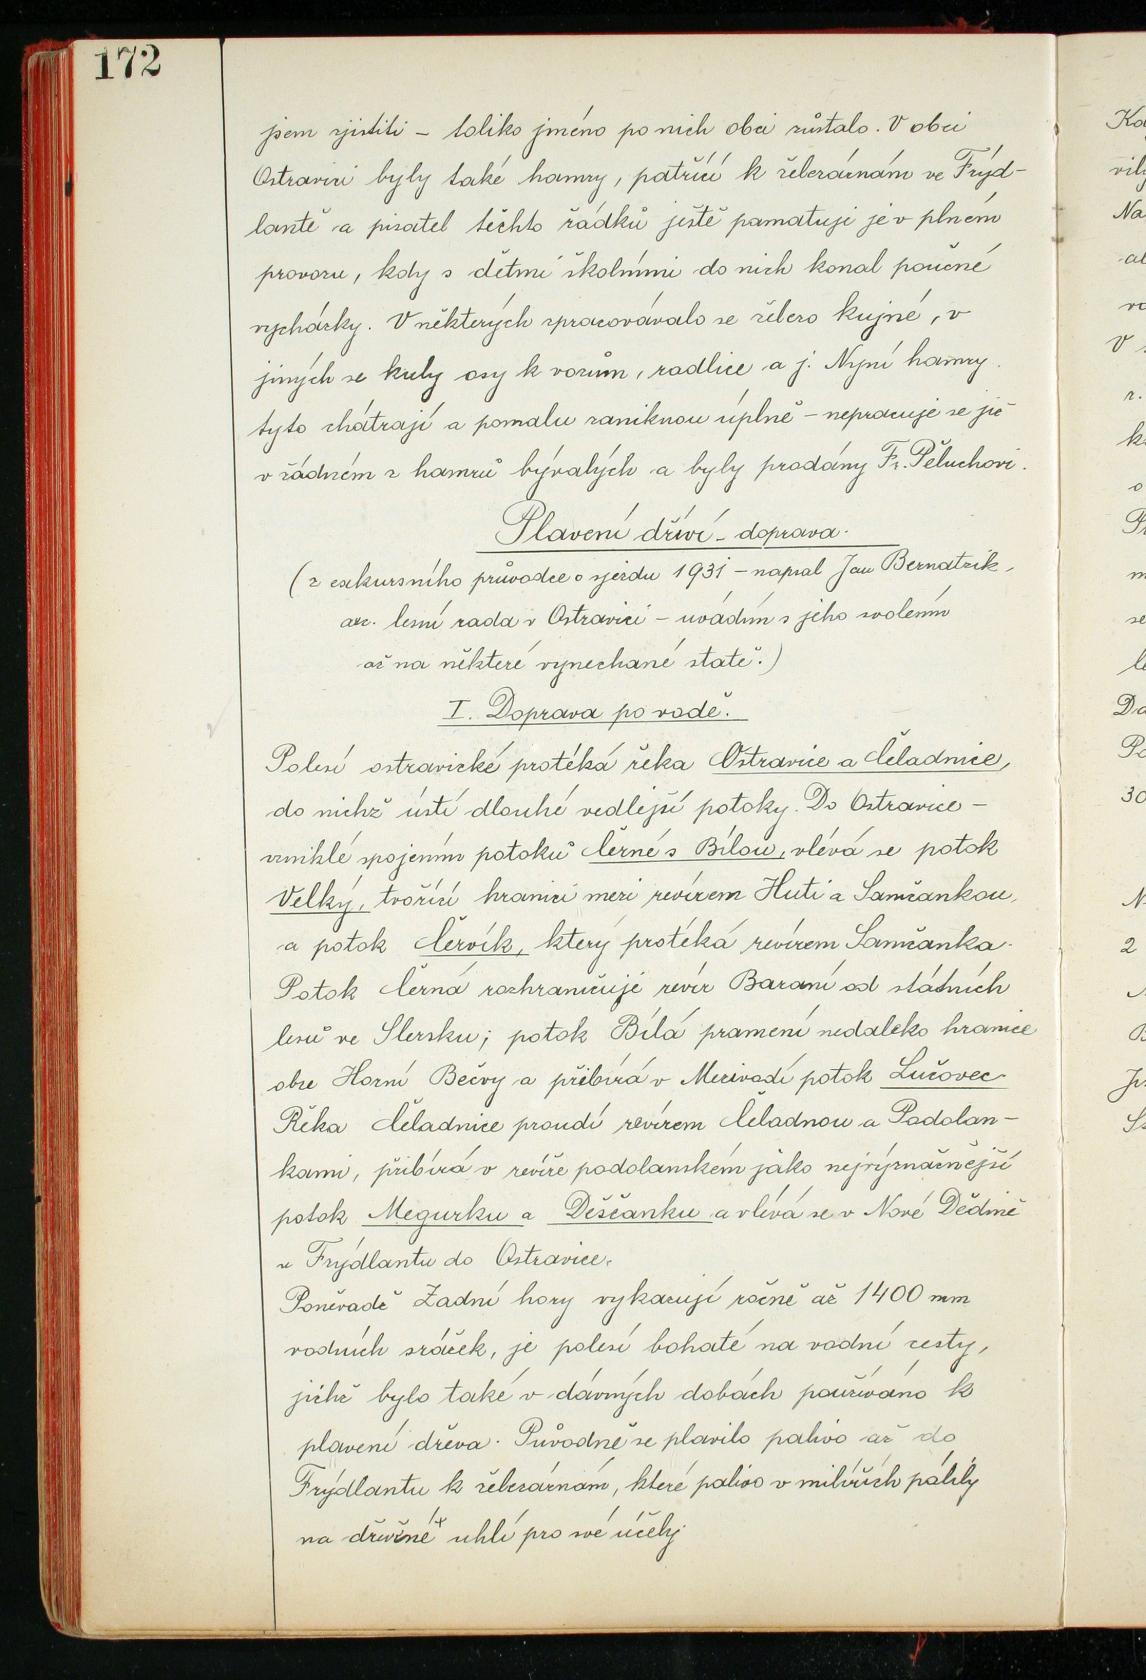 172
jsem zjistiti – toliko jméno po nich obci zůstalo. V obci
Ostravici byly také hamry, patřící k železárnám ve Frýd-
lantě a pisatel těchto řádků ještě pamatuje je v plném
provozu, kdy s dětmi školními do nich konal poučné
vycházky. V některých zpracovávalo se železo kujné, v
jiných se kuly osy k vozům, radlice a j. Nyní hamry
tyto chátrají a pomalu zaniknou úplně – nepracuje se již
v žádném z hamrů bývalých a byly prodány Fr. Peluchovi.
Plavení dříví – doprava.
(z exkursního průvodce o sjezdu 1931 – napsal Jan Bernatzik,
arc. lesní rada v Ostravici – uvádím s jeho svolením
až na některé vynechané statě.)
I. Doprava po vodě.
Polesí ostravické protéká řeka Ostravice a Čeladnice,
do nichž ústí dlouhé vedlejší potoky. Do Ostravice –
vzniklé spojením potoků Černé s Bílou, vlévá se potok
Velký, tvořící hranici mezi revírem Huti a Samčankou,
a potok Červík, který protéká revírem Samčanka.
Potok Černá rozhraničuje revír Baraní od státních
lesů ve Slezsku; potok Bílá pramení nedaleko hranice
obce Horní Bečvy a přibírá v Mezivodí potok Lučovec
Řeka Čeladnice proudí revírem Čeladnou a Podolan-
kami, přibírá v revíře podolanském jako nejvýznačnější
potok Megurku a Deščanku a vlévá se v Nové Dědině
u Frýdlantu do Ostravice.
Poněvadž Zadní hory vykazují ročně až 1400 mm
vodních srážek, je polesí bohaté na vodní cesty,
jichž bylo také v dávných dobách používáno k
plavení dřeva. Původně se plavilo palivo až do
Frýdlantu k železárnám, které palivo v milířích pálily
na dřevěné uhlí pro své účely.